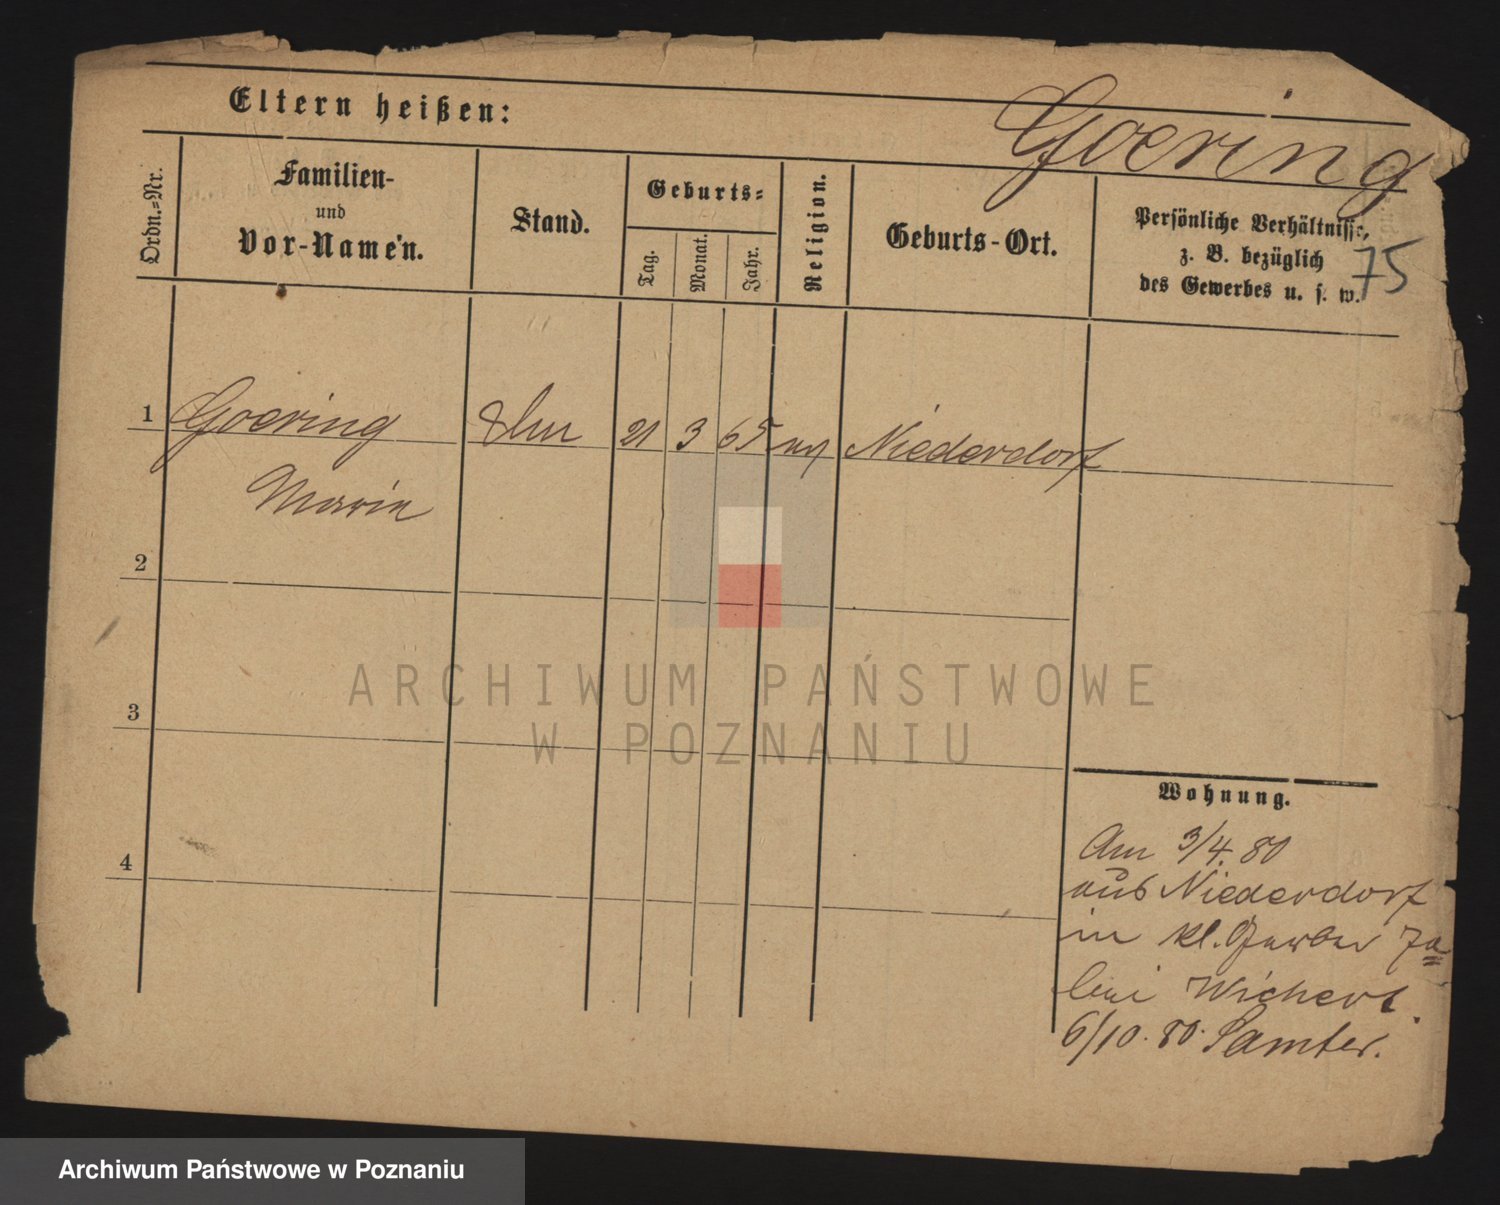 Eltern heißen:
Goering
Ordn.=Nr.
Familien-
und
Vor-Namen.
Stand.
Geburts=
Tag.
Monat.
Jahr.
Religion.
Geburts-Ort.
Persönliche Verhältnisse,
z. B. bezüglich
des Gewerbes u. s. w.
75
1 Goering 21 3 65 Niederdorf
Marie
2
3
4
Wohnung.
Am 3/4. 80
aus Niederdorf
in kl. Gerber 7a
bei Wichert.
6/10. 80. Samter.
ARCHIWUM PAŃSTWOWE
W POZNANIU
Archiwum Państwowe w Poznaniu